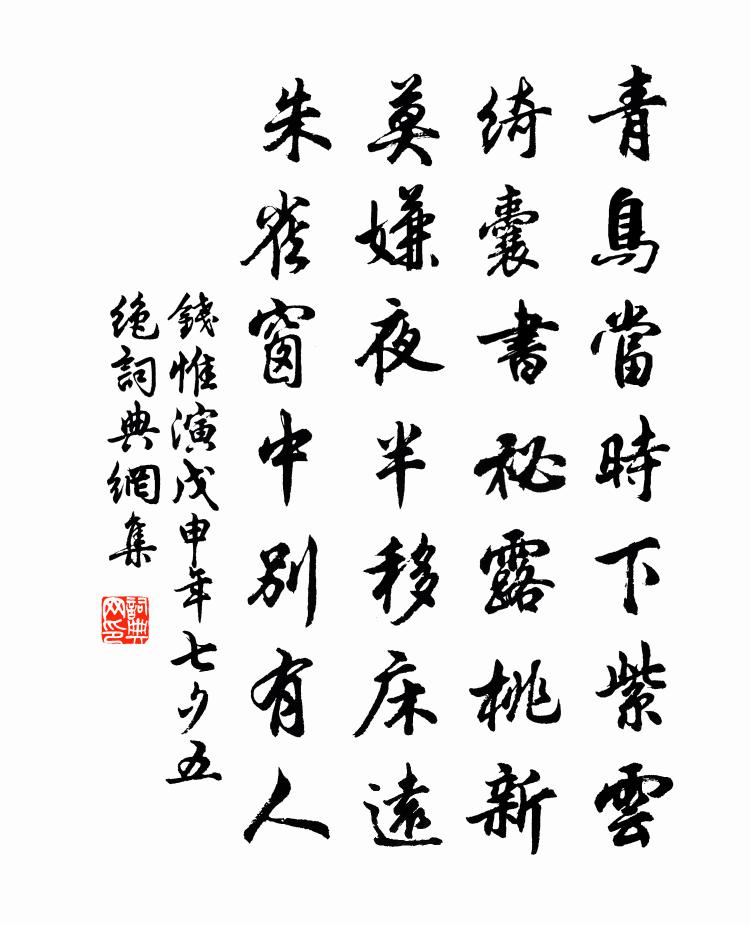 青鳥當時下紫雲
綺囊書秘露桃新
莫嫌夜半移床遠
朱雀窗中別有人
錢惟演戊申年七夕五
絶詞典網集
詞典网印